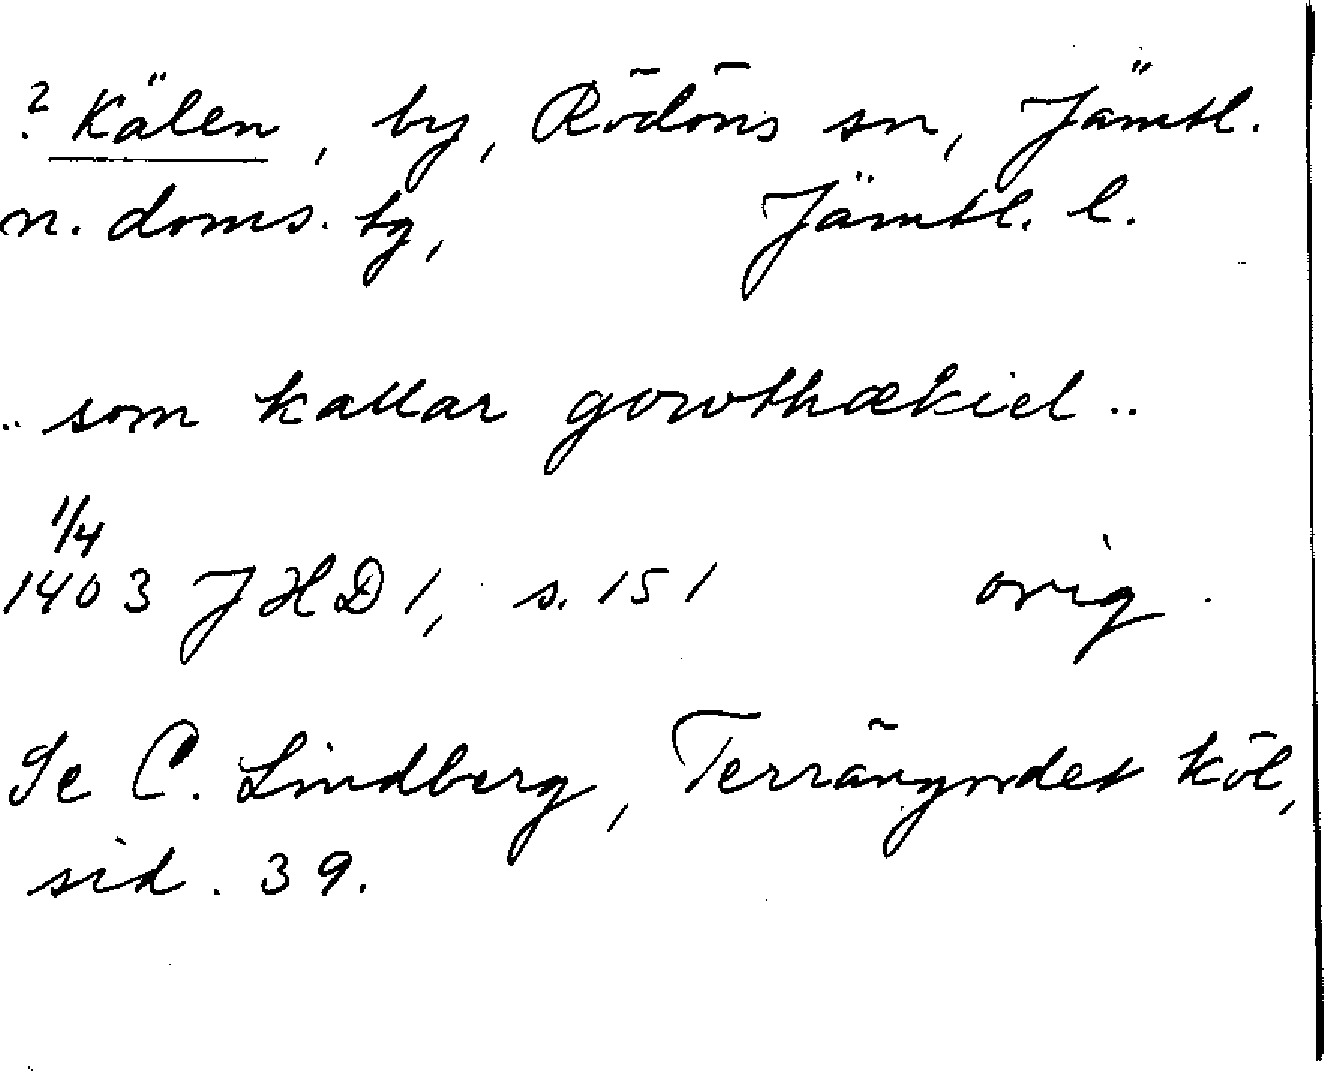 ? Kälen, by, Rödöns sn, Jämtl.
n. doms. tg, Jämtl. l.
.. som kallar gowthækiel ..
1/4
1403 JHD 1, s. 151 orig.
Se C. Lindberg, Terrängordet köl,
sid. 39.